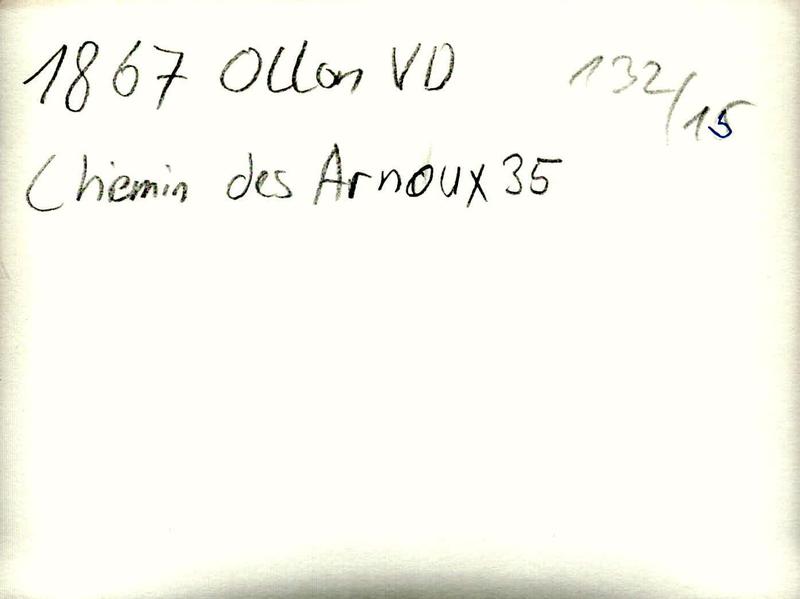 1867 Ollon VD 132/15
Chemin des Arnoux 35